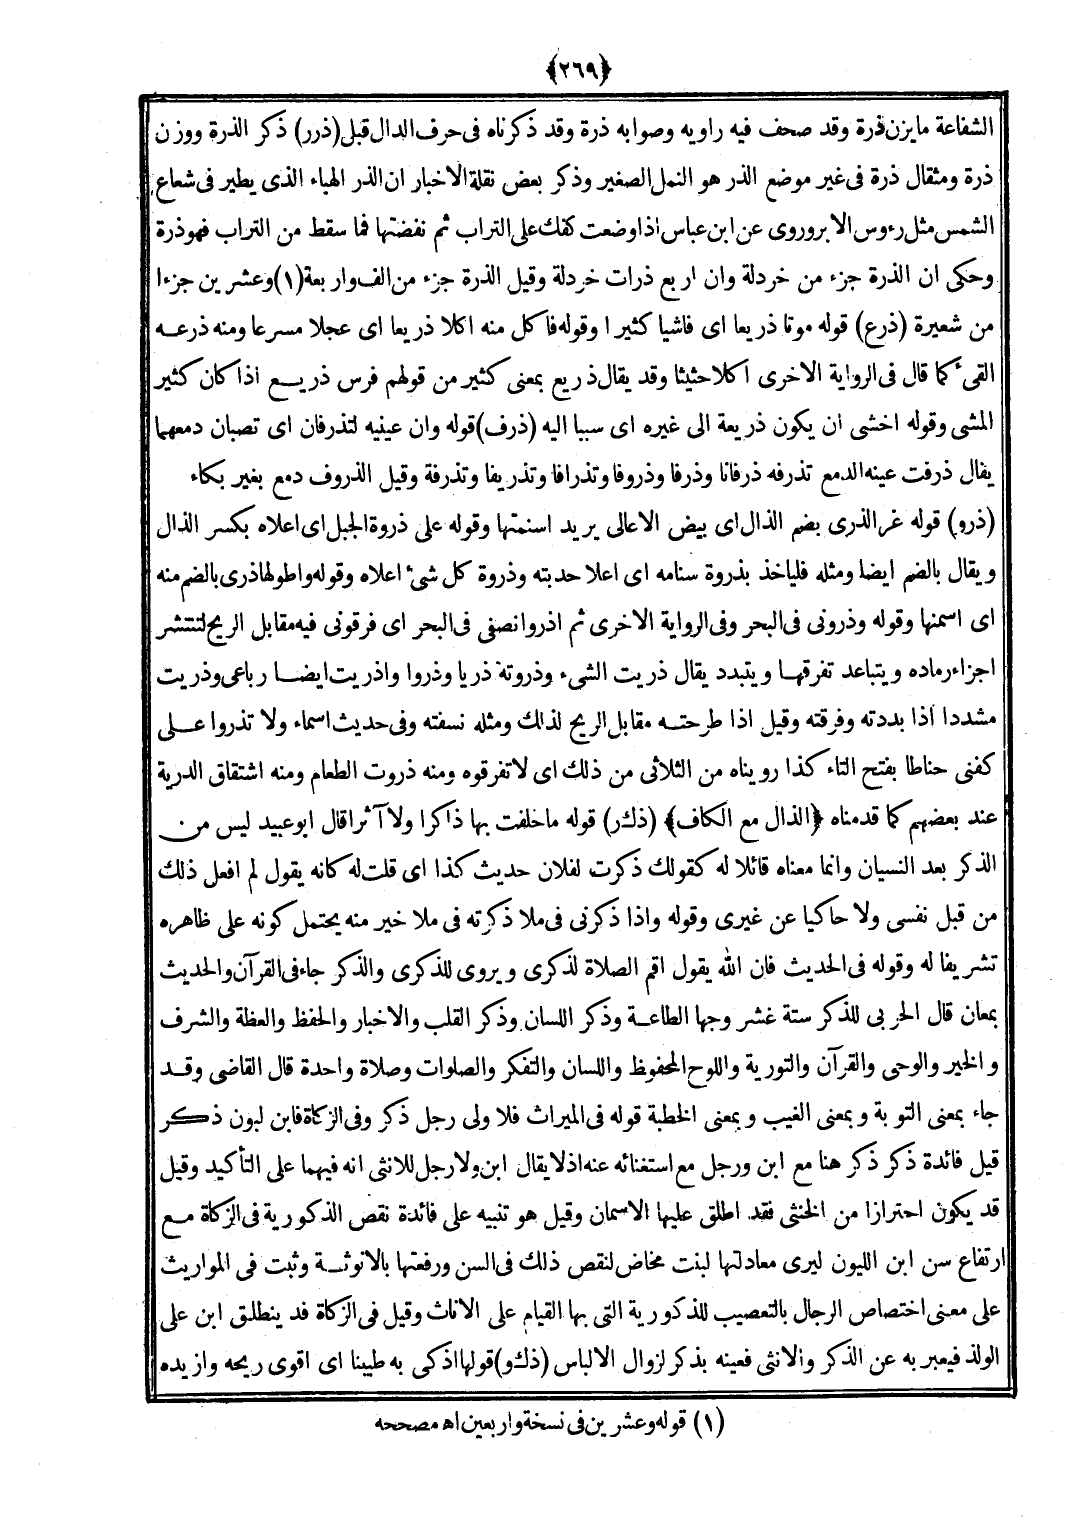 ﴿٢٦٩﴾
الشفاعة مايزن ذرة وقد صحف فيه راويه وصوابه ذرة وقد ذكرناه فى حرف الدال قبلى (ذرر) ذكر الذرة ووزن
ذرة ومثقال ذرة فى غير موضع الذر هو النمل الصغير وذكر بعض نقلة الاخبار ان الذر الهباء الذى يطير فى شعاع
الشمس مثل رءوس الابر وروى عن ابن عباس اذا وضعت كفك على التراب ثم نفضتها فما سقط من التراب فهو ذرة
وحكى ان الذرة جزء من خردلة وان اربع ذرات خردلة وقيل الذرة جزء من الف واربعة (١) وعشرين جزءا
من شعيرة (ذرع) قوله موتا ذريعا اى فاشيا كثيرا وقوله فاكل منه اكلا ذريعا اى عجلا مسرعا ومنه ذرعه
القىء كما قال فى الرواية الاخرى اكلا حثيثا وقد يقال ذريع بمعنى كثير من قولهم فرس ذريع اذا كان كثير
المشى وقوله اخشى ان يكون ذريعة الى غيره اى سببا اليه (ذرف) قوله وان عينيه لتذرفان اى تصبان دمعهما
يقال ذرفت عينه الدمع تذرفه ذرفانا وذرفا وذروفا وتذرافا وتذريفا وتذرفة وقيل الذروف دمع بغير بكاء
(ذرو) قوله غر الذرى بضم الذال اى بيض الاعالى يريد اسنمتها وقوله على ذروة الجبل اى اعلاه بكسر الذال
ويقال بالضم ايضا ومثله فلياخذ بذروة سنامه اى اعلا حدبته وذروة كل شىء اعلاه وقوله واطولها ذرى بالضم منه
اى اسمنها وقوله وذرونى فى البحر وفى الرواية الاخرى ثم اذروا نصفى فى البحر اى فرقونى فيه مقابل الريح لتنتشر
اجزاء رماده ويتباعد تفرقها ويتبدد يقال ذريت الشىء وذروته ذريا وذروا واذريت ايضا رباعى وذريت
مشددا اذا بددته وفرقته وقيل اذا طرحته مقابل الريح لذلك ومثله نسفته وفى حديث اسماء ولا تذروا على
كفنى حناطا بفتح التاء كذا رويناه من الثلاثى من ذلك اى لا تفرقوه ومنه ذروت الطعام ومنه اشتقاق الذرية
عند بعضهم كما قدمناه ﴿الذال مع الكاف﴾ (ذكر) قوله ما حلفت بها ذاكرا ولا آثرا قال ابو عبيد ليس من
الذكر بعد النسيان وانما معناه قائلا له كقولك ذكرت لفلان حديث كذا اى قلت له كانه يقول لم افعل ذلك
من قبل نفسى ولا حاكيا عن غيرى وقوله واذا ذكرنى فى ملا ذكرته فى ملا خير منه يحتمل كونه على ظاهره
تشريفا له وقوله فى الحديث فان الله يقول اقم الصلاة لذكرى ويروى للذكرى والذكر جاء فى القرآن والحديث
بمعان قال الحربى للذكر ستة عشر وجها الطاعة وذكر اللسان وذكر القلب والاخبار والحفظ والعظة والشرف
والخير والوحى والقرآن والتورية واللوح المحفوظ واللسان والتفكر والصلوات وصلاة واحدة قال القاضى وقد
جاء بمعنى التوبة وبمعنى الغيب وبمعنى الخطبة قوله فى الميراث فلا ولى رجل ذكر وفى الزكاة فابن لبون ذكر
قيل فائدة ذكر ذكر هنا مع ابن ورجل مع استغنائه عنه اذ لا يقال ابن ولا رجل للانثى انه فيهما على التأكيد وقيل
قد يكون احترازا من الخنثى فقد اطلق عليها الاسمان وقيل هو تنبيه على فائدة نقص الذكورية فى الزكاة مع
ارتفاع سن ابن اللبون ليرى معادلتها لبنت مخاض لنقص ذلك فى السن ورفعتها بالانوثة وثبت فى المواريث
على معنى اختصاص الرجال بالتعصيب للذكورية التى بها القيام على الاناث وقيل فى الزكاة قد ينطلق ابن على
الولد فيعبر به عن الذكر والانثى فعينه بذكر لزوال الالباس (ذكو) قولها اذكى به طيبنا اى اقوى ريحه وازيده
(١) قوله وعشرين فى نسخة واربعين اه مصححه